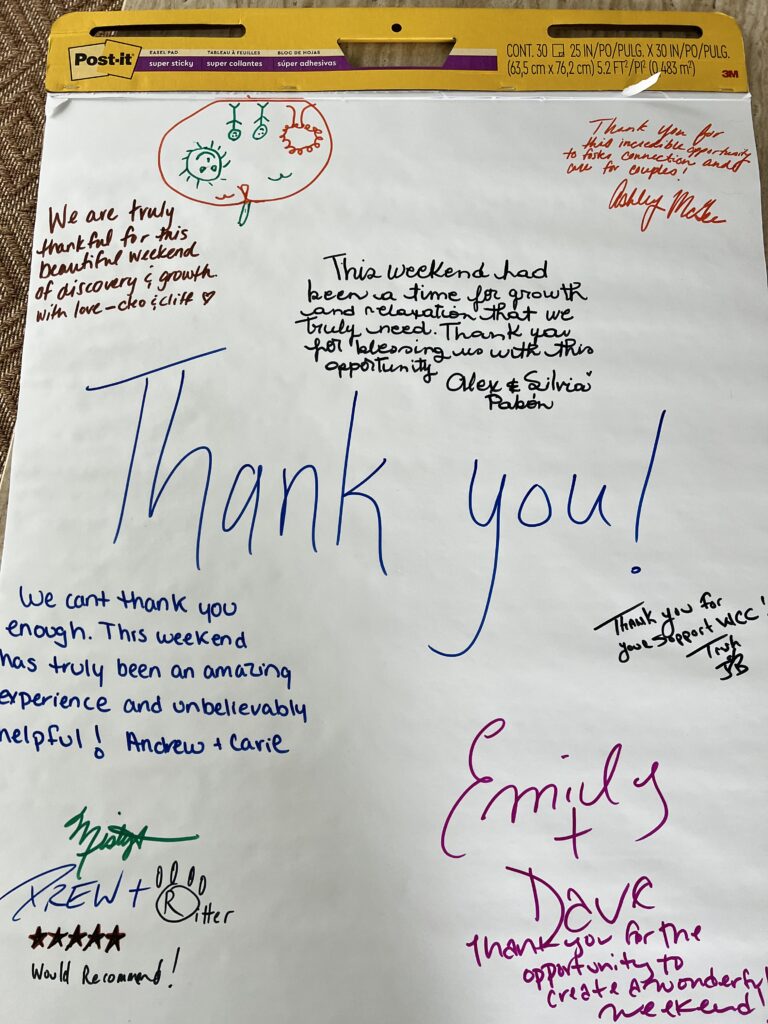 Post-it
EASEL PAD
super sticky
TABLEAU À FEUILLES
super collantes
BLOC DE HOJAS
súper adhesivas
CONT. 30 25 IN/PO/PULG. X 30 IN/PO/PULG.
(63,5 cm x 76,2 cm) 5.2 FT²/PI² (0,483 m²)
3M
Thank you for
this incredible opportunity
to foster connection and
care for couples!
Ashley McGee
We are truly
thankful for this
beautiful weekend
of discovery & growth.
with love - cleo & cliff
This weekend had
been a time for growth
and relaxation that we
truly need. Thank you
for blessing us with this
opportunity
Alex & Silvia
Pabón
Thank you!
We cant thank you
enough. This weekend
has truly been an amazing
experience and unbelievably
helpful! Andrew + Carie
Thank you for
your support WCC!
Emily
+
Dave
Thank you for the
opportunity to
create a wonderful
weekend!
Misty
DREW + Ritter
★★★★★
Would Recommend!